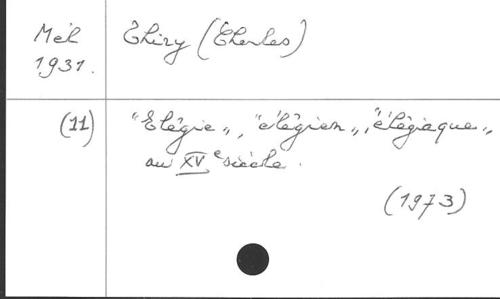 Mél Thiry (Charles)
1931.
(11) "Elégie", "élégien", "élégiaque"
au XVe siècle.
(1973)